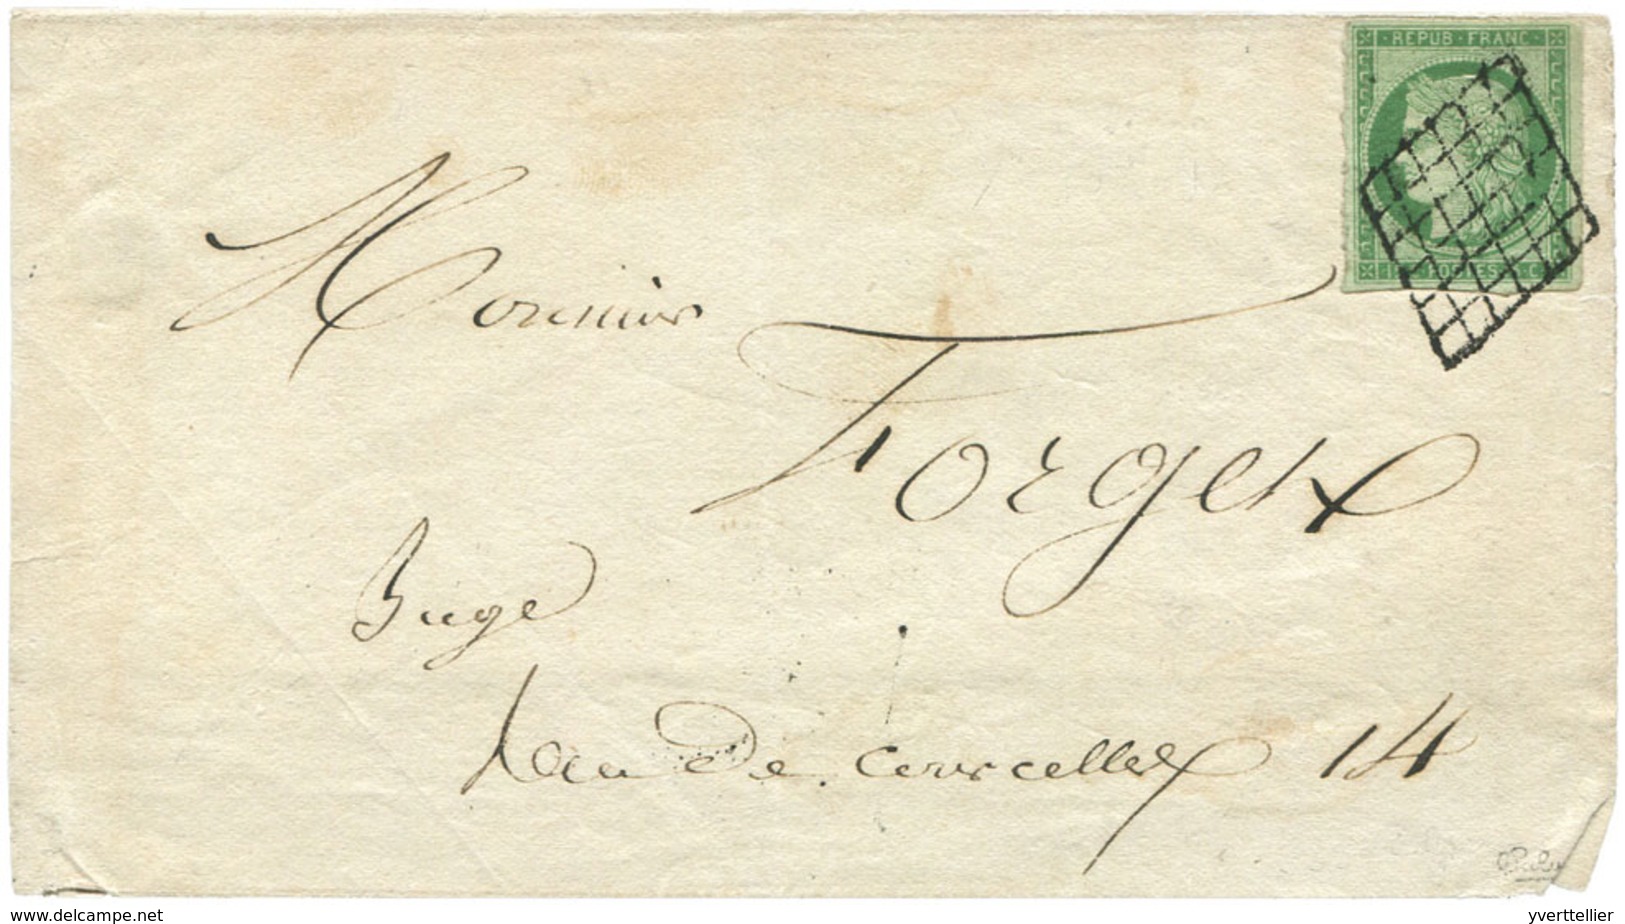 REPUB · FRANC
15 POSTES 15 C
Monsieur
Forget
Juge
Rue de Courcelles 14
www.delcampe.com
yverttellier